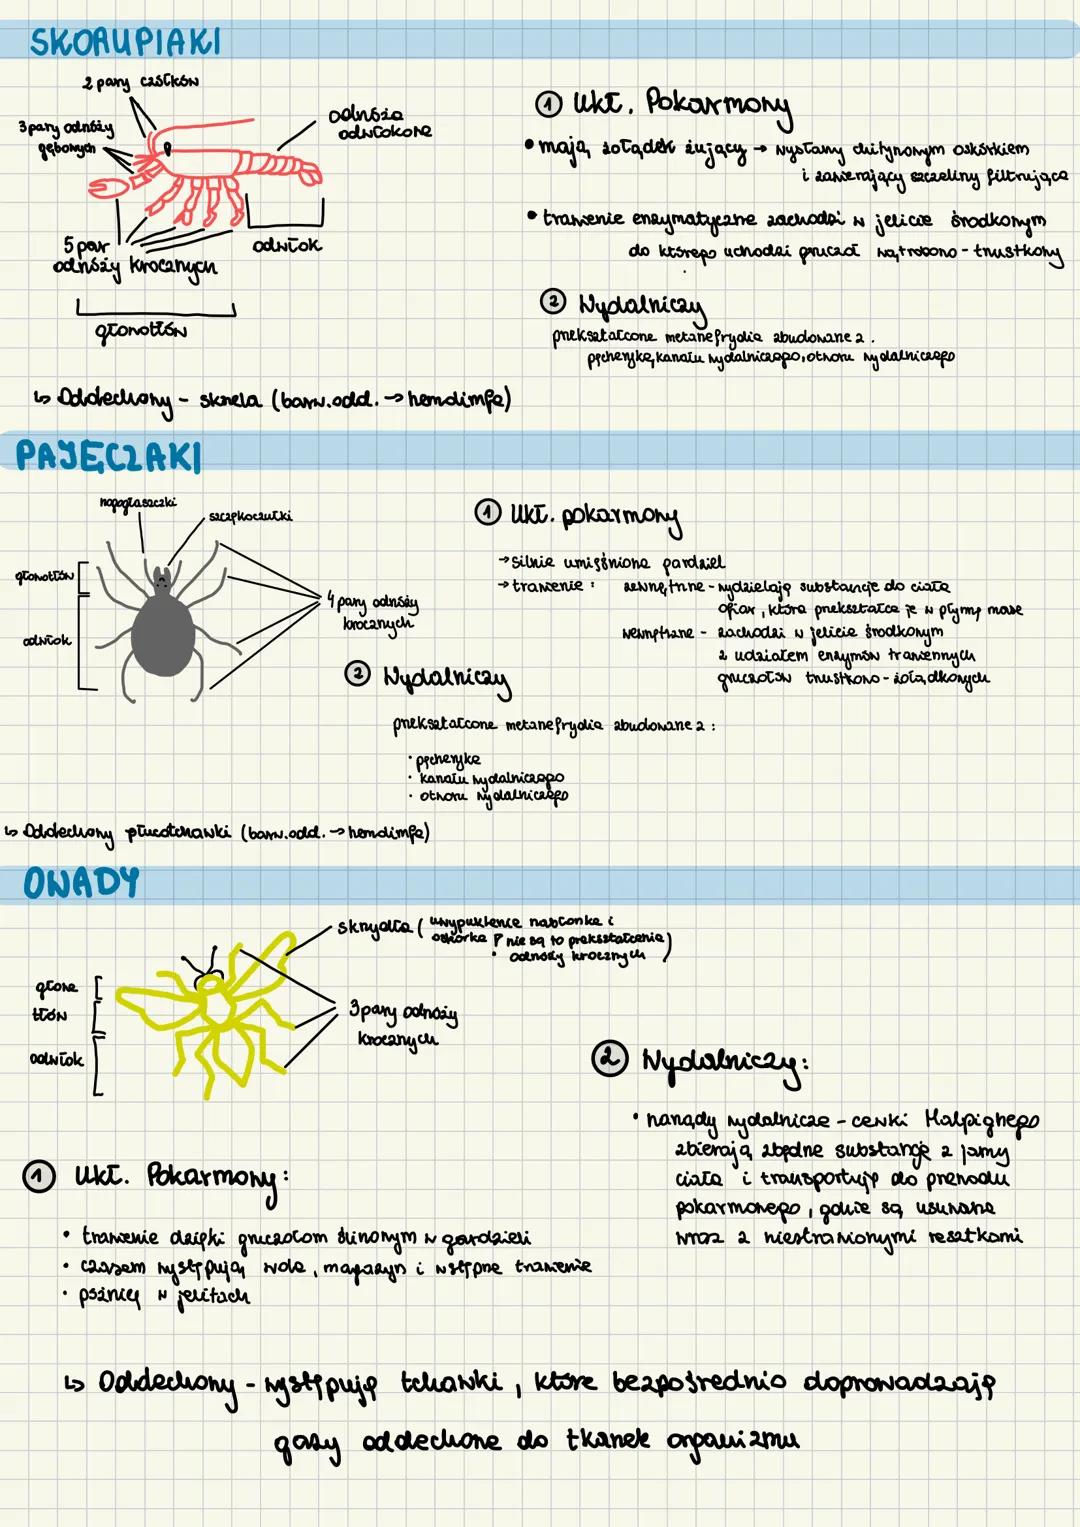 SKORUPIAKI
2 pary czułków
3 pary odnóży
gębowych
odnóża
odwłokowe
5 par
odnóży krocznych
odwłok
głowotłów
① Ukł. Pokarmowy
• mają żołądek żujący → wysłany chitynowym oskórkiem
i zawierający szczeliny filtrujące
• trawienie enzymatyczne zachodzi w jelicie środkowym
do którego uchodzi gruczoł wątrobowo - trzustkowy
② Wydalniczy
przekształcone metanefrydia zbudowane z .
pęcherzyka, kanału wydalniczego, otworu wydalniczego
↳ Oddechowy - skrzela (barw.odd. → hemolimfa)
PAJĘCZAKI
nogogłaszczki
szczękoczułki
głowotłów
odwłok
4 pary odnóży
krocznych
① Ukł. pokarmowy
→ silnie umięśniona gardziel
→ trawienie : zewnętrzne - wydzielają substancje do ciała
ofiar, która przekształca je w płynną masę
wewnętrzne - zachodzi w jelicie środkowym
z udziałem enzymów trawiennych
gruczołów trzustkowo - żołądkowych
② Wydalniczy
przekształcone metanefrydia zbudowane z :
· pęcherzyka
· kanału wydalniczego
· otworu wydalniczego
↳ Oddechowy płucotchawki (barw.odd. → hemolimfa)
OWADY
skrzydła ( uwypuklenie nabłonka i
oskórka ! nie są to przekształcenia
odnóży krocznych )
głowa
tłów
odwłok
3 pary odnóży
krocznych
② Wydalniczy:
• narządy wydalnicze - cewki Malpighego
zbierają zbędne substancje z jamy
ciała i transportują do przewodu
pokarmowego, gdzie są usuwane
wraz z niestrawionymi resztkami
① Ukł. Pokarmowy:
• trawienie dzięki gruczołom ślinowym w gardzieli
• czasem występują wole, magazyn i wstępne trawienie
• później w jelitach
↳ Oddechowy - występują tchawki, które bezpośrednio doprowadzają
gazy oddechowe do tkanek organizmu